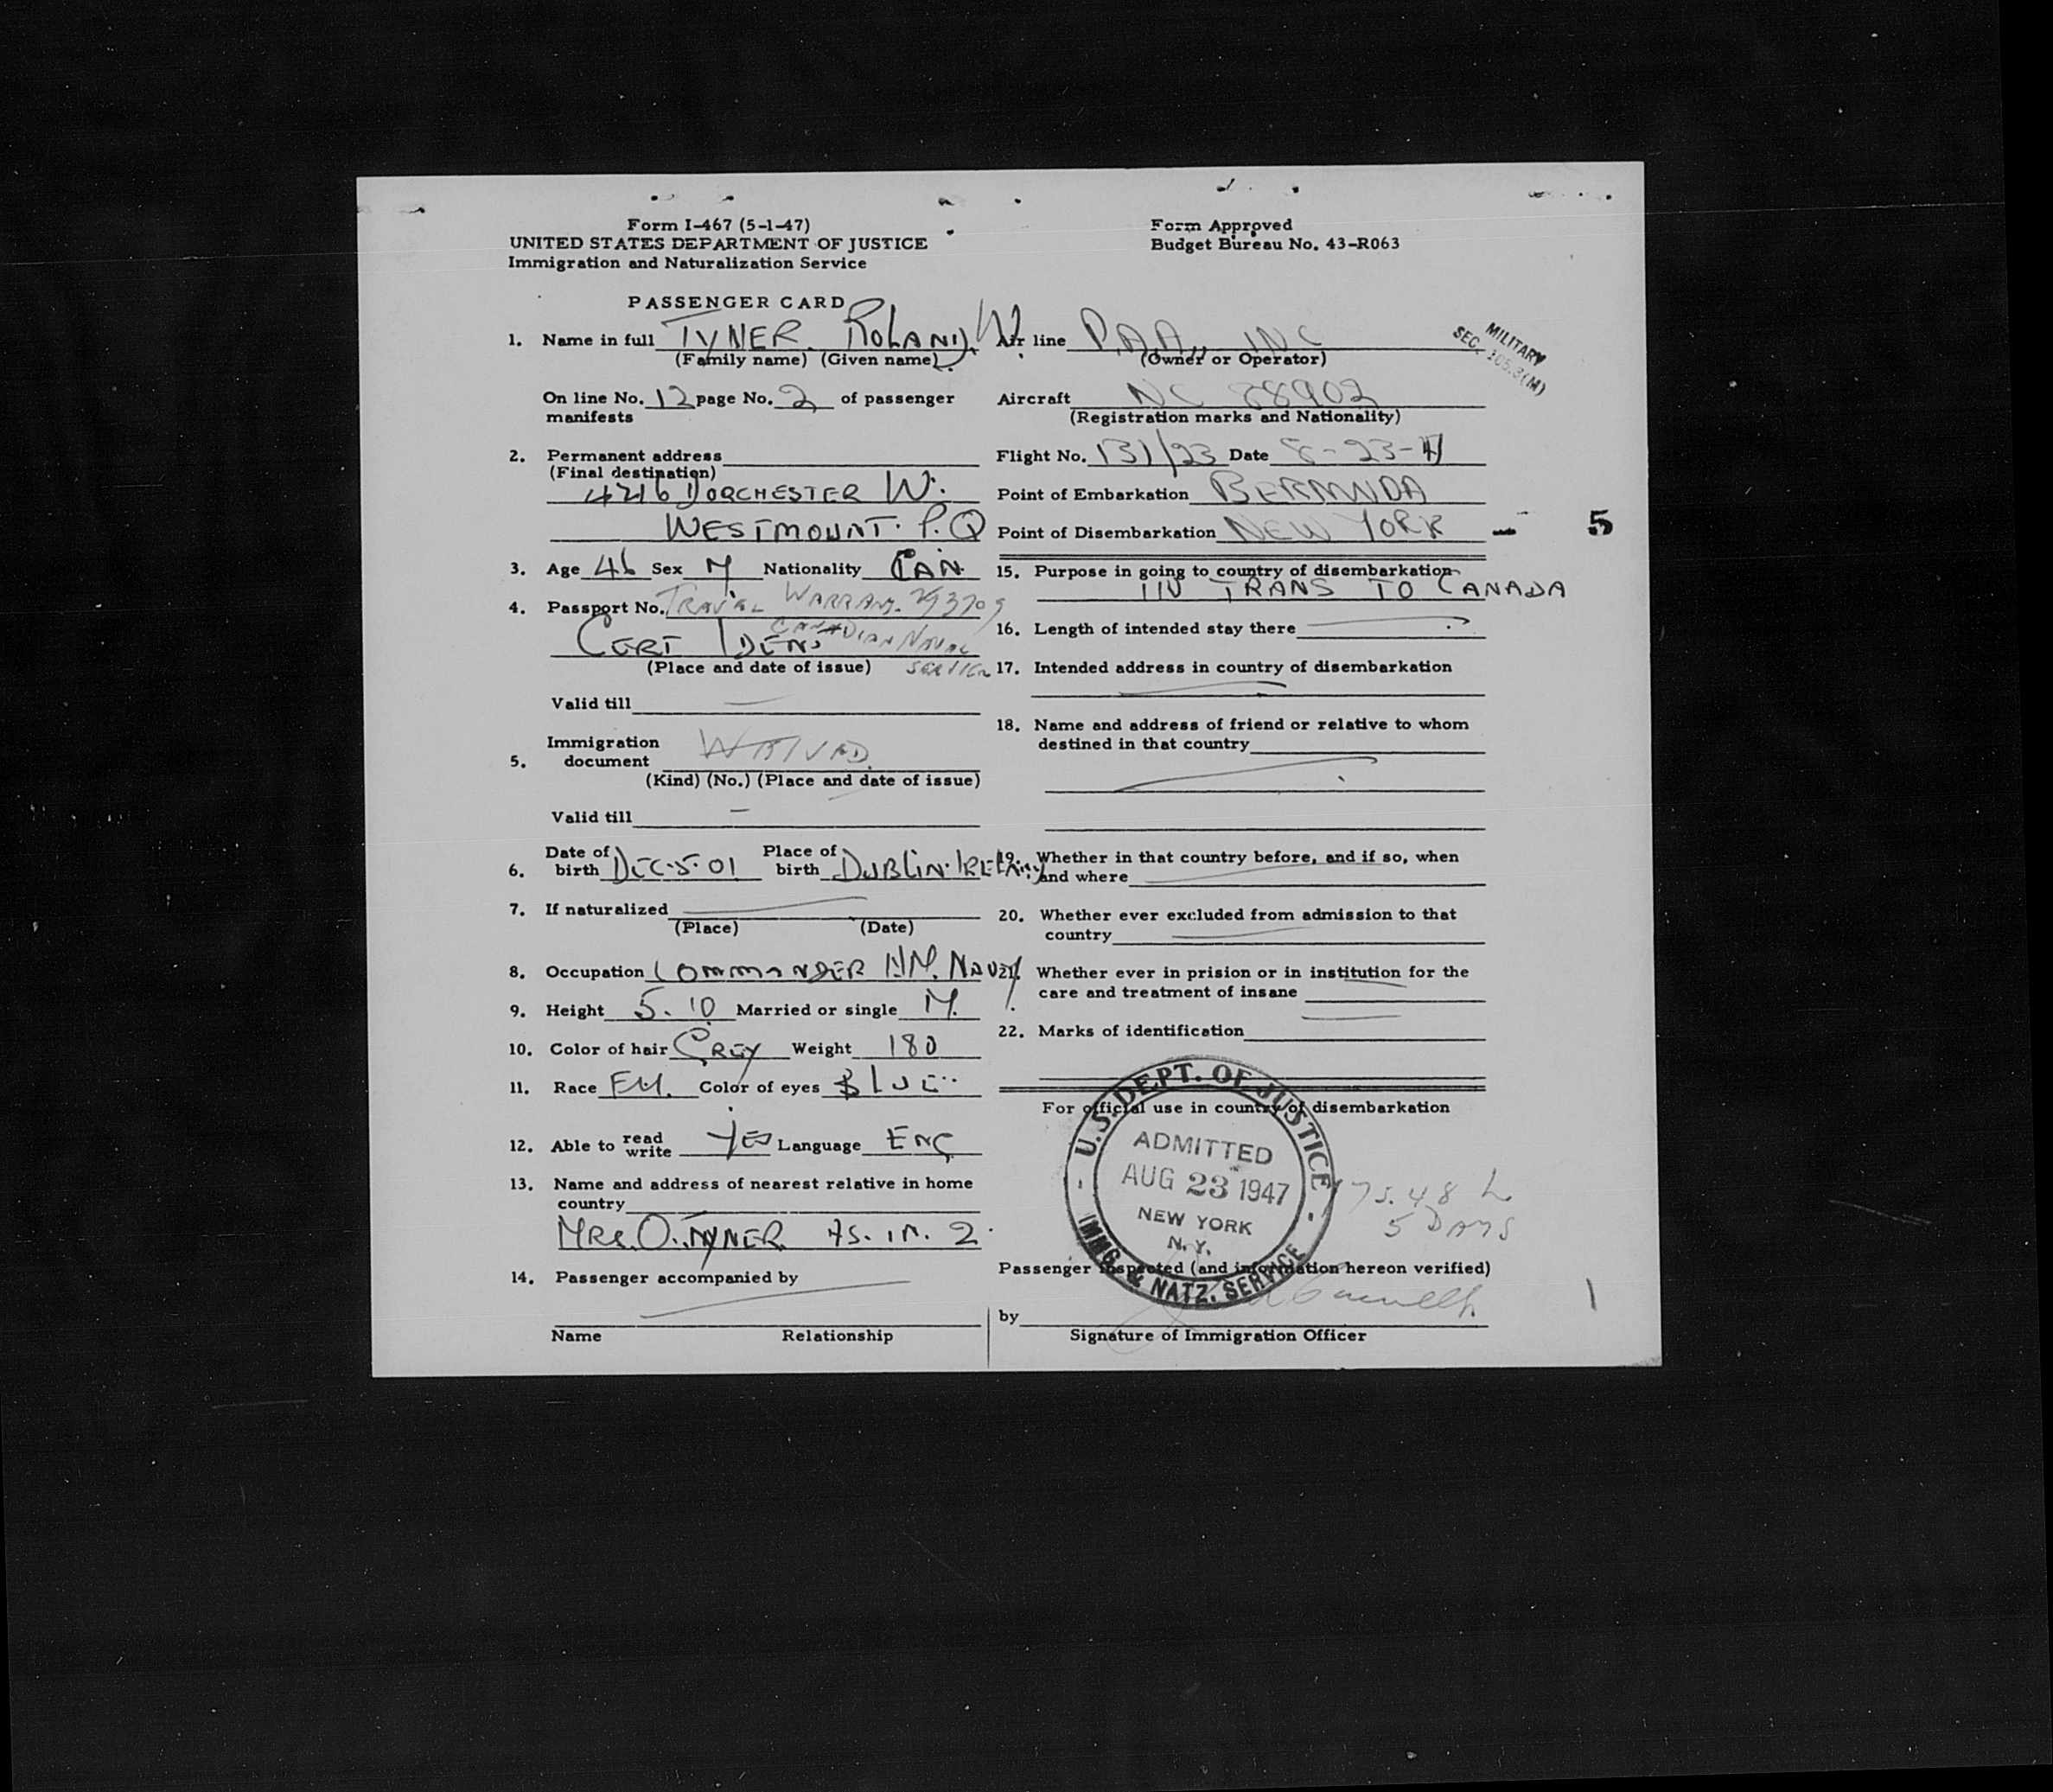 Form I-467 (5-1-47)
UNITED STATES DEPARTMENT OF JUSTICE
Immigration and Naturalization Service
Form Approved
Budget Bureau No. 43-R063
PASSENGER CARD
1. Name in full TYNER. ROLAND. W.
(Family name) (Given name)
On line No. 12 page No. 2 of passenger
manifests
2. Permanent address
(Final destination)
4216 DORCHESTER W.
WESTMOUNT. P.Q
3. Age 46 Sex M Nationality CAN.
4. Passport No. TRAVEL WARRANT.
CANADIAN NAVAL
CERT IDEN
(Place and date of issue) SERVICE
Valid till —
Immigration
5. document WAIVED.
(Kind) (No.) (Place and date of issue)
Valid till —
6. Date of birth DEC.5.01 Place of birth DUBLIN. IRELAND
7. If naturalized
(Place) (Date)
8. Occupation COMMANDER NAVY
9. Height 5.10 Married or single M.
10. Color of hair GREY Weight 180
11. Race Color of eyes BLUE
12. Able to read write YES Language ENG
13. Name and address of nearest relative in home
country
MRS. O. TYNER AS. IN. 2.
14. Passenger accompanied by
Name Relationship
Air line P.A.A., INC
(Owner or Operator)
MILITARY
SEC. 105.3(M)
Aircraft NC 88902
(Registration marks and Nationality)
Flight No. 131/23 Date 8-23-47
Point of Embarkation BERMUDA
Point of Disembarkation NEW YORK — 5
15. Purpose in going to country of disembarkation
IN TRANS TO CANADA
16. Length of intended stay there
17. Intended address in country of disembarkation
18. Name and address of friend or relative to whom
destined in that country
19. Whether in that country before, and if so, when
and where
20. Whether ever excluded from admission to that
country
21. Whether ever in prision or in institution for the
care and treatment of insane
22. Marks of identification
For official use in country of disembarkation
U.S. DEPT. OF JUSTICE
ADMITTED
AUG 23 1947
NEW YORK
N.Y.
IMMG. & NATZ. SERVICE
175.48
5 DAYS
Passenger inspected (and information hereon verified)
by
Signature of Immigration Officer